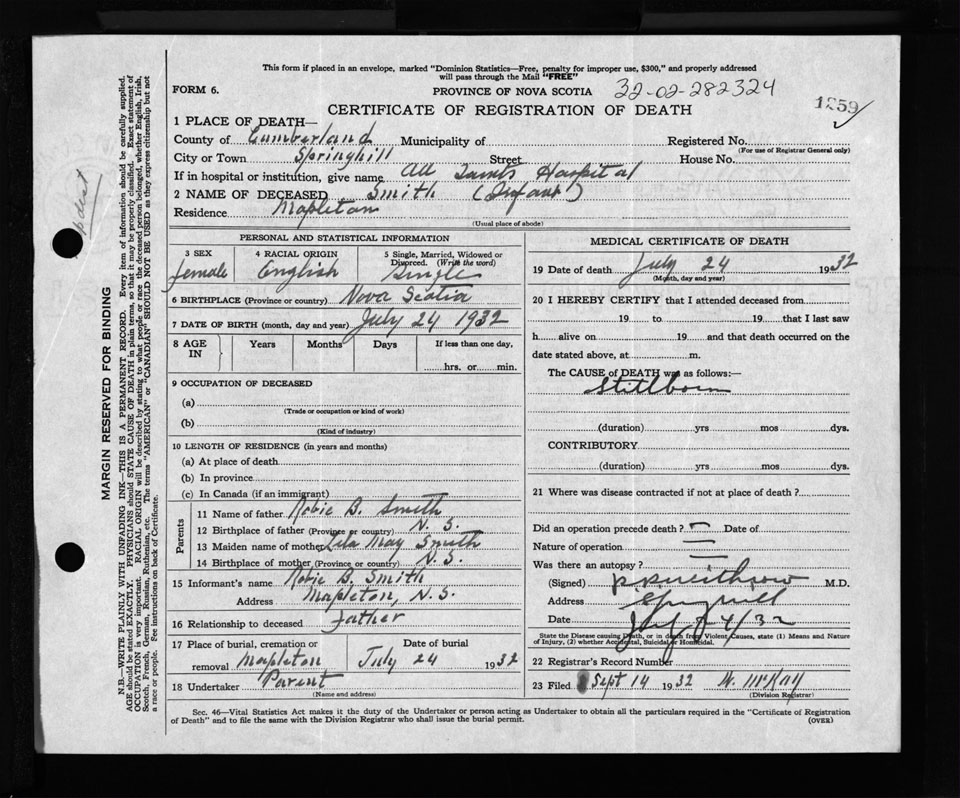 This form if placed in an envelope, marked "Dominion Statistics—Free, penalty for improper use, $300," and properly addressed
will pass through the Mail "FREE"
FORM 6.
PROVINCE OF NOVA SCOTIA 32-02-282324
1259
CERTIFICATE OF REGISTRATION OF DEATH
1 PLACE OF DEATH—
County of Cumberland Municipality of Registered No.
(For use of Registrar General only)
City or Town Springhill Street House No.
If in hospital or institution, give name All Saints Hospital
2 NAME OF DECEASED Smith (Infant)
Residence Mapleton
(Usual place of abode)
PERSONAL AND STATISTICAL INFORMATION
3 SEX female
4 RACIAL ORIGIN English
5 Single, Married, Widowed or
Divorced. (Write the word)
Single
6 BIRTHPLACE (Province or country) Nova Scotia
7 DATE OF BIRTH (month, day and year) July 24 1932
8 AGE IN Years Months Days If less than one day,
hrs. or min.
9 OCCUPATION OF DECEASED
(a)
(Trade or occupation or kind of work)
(b)
(Kind of industry)
10 LENGTH OF RESIDENCE (in years and months)
(a) At place of death
(b) In province
(c) In Canada (if an immigrant)
Parents
11 Name of father Robie B. Smith
12 Birthplace of father (Province or country) N. S.
13 Maiden name of mother May Smith
14 Birthplace of mother (Province or country) N. S.
15 Informant's name Robie B. Smith
Address Mapleton, N. S.
16 Relationship to deceased Father
17 Place of burial, cremation or
removal Mapleton
Date of burial
July 24 1932
18 Undertaker Parent
(Name and address)
MEDICAL CERTIFICATE OF DEATH
19 Date of death July 24 1932
(Month, day and year)
20 I HEREBY CERTIFY that I attended deceased from
19 to 19 that I last saw
h alive on 19 and that death occurred on the
date stated above, at m.
The CAUSE of DEATH was as follows:—
Stillborn
(duration) yrs mos dys.
CONTRIBUTORY
(duration) yrs mos dys.
21 Where was disease contracted if not at place of death?
Did an operation precede death? — Date of
Nature of operation —
Was there an autopsy? —
(Signed) M.D.
Address Springhill
Date July 24/32
State the Disease causing Death, or in death from Violent Causes, state (1) Means and Nature
of Injury, (2) whether Accidental, Suicidal or Homicidal.
22 Registrar's Record Number
23 Filed Sept 14 1932 W. McKay
(Division Registrar)
Sec. 46—Vital Statistics Act makes it the duty of the Undertaker or person acting as Undertaker to obtain all the particulars required in the "Certificate of Registration
of Death" and to file the same with the Division Registrar who shall issue the burial permit. (OVER)
MARGIN RESERVED FOR BINDING
N.B.—WRITE PLAINLY WITH UNFADING INK—THIS IS A PERMANENT RECORD. Every item of information should be carefully supplied.
AGE should be stated EXACTLY. PHYSICIANS should STATE CAUSE OF DEATH in plain terms, so that it may be properly classified. Exact statement of
OCCUPATION is very important. RACIAL ORIGIN will be described by stating to what people or race the deceased person belonged, whether English, Irish,
Scotch, French, German, Russian, Ruthenian, etc. The terms "AMERICAN" or "CANADIAN" SHOULD NOT BE USED as they express citizenship but not
a race or people. See instructions on back of Certificate.